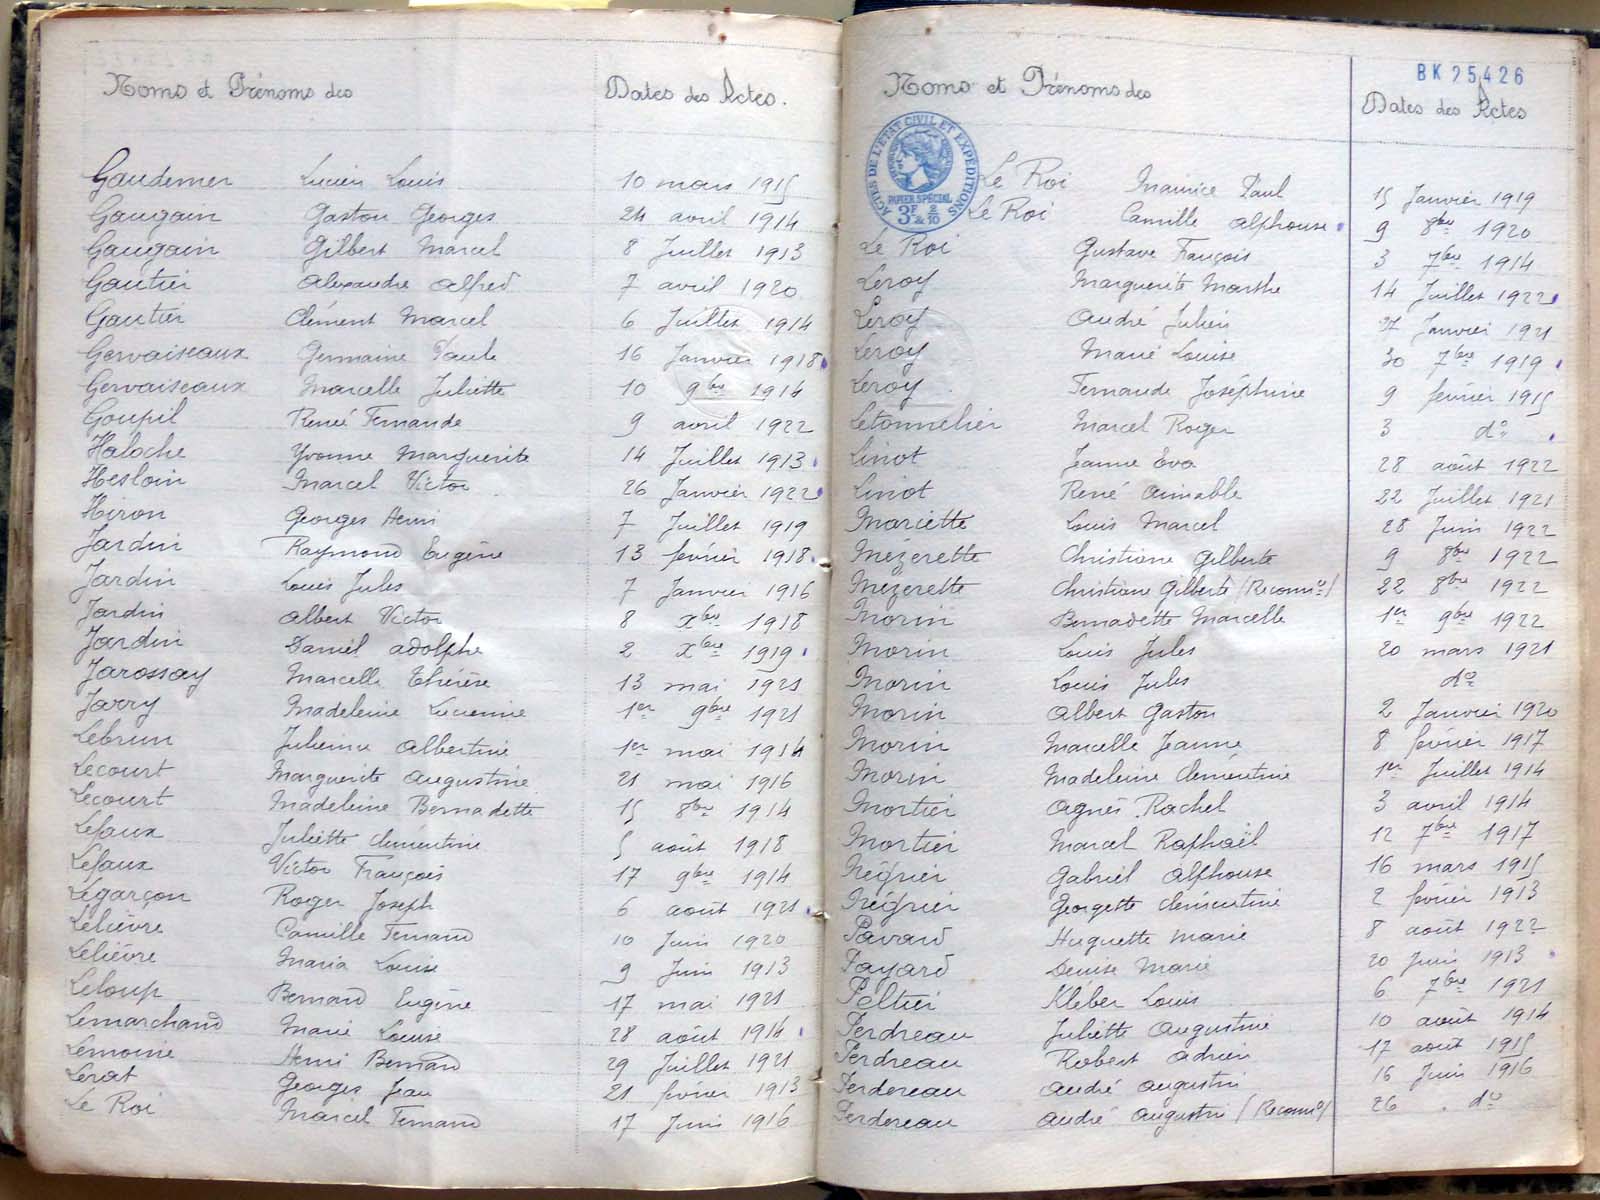 Noms et Prénoms des Dates des Actes.
Gaudemer Lucien Louis 10 mars 1915
Gaugain Gaston Georges 24 avril 1914
Gaugain Gilbert Marcel 8 Juillet 1913
Gautier Alexandre Alfred 7 avril 1920
Gautier Clément Marcel 6 Juillet 1914
Gervaiseaux Germaine Paule 16 Janvier 1918
Gervaiseaux Marcelle Juliette 10 9bre 1914
Goupil René Fernande 9 avril 1922
Haloche Yvonne Marguerite 14 Juillet 1913
Hesloin Marcel Victor 26 Janvier 1922
Hiron Georges Henri 7 Juillet 1919
Jardin Raymond Eugène 13 février 1918
Jardin Louis Jules 7 Janvier 1916
Jardin Albert Victor 8 xbre 1918
Jardin Daniel Adolphe 2 xbre 1919
Jarossay Marcelle Thérèse 13 mai 1921
Jarry Madeleine Lucienne 1er 9bre 1921
Lebrun Julienne Albertine 1er mai 1914
Lecourt Marguerite Augustine 21 mai 1916
Lecourt Madeleine Bernadette 15 8bre 1914
Lefaux Juliette Clémentine 5 août 1918
Lefaux Victor François 17 9bre 1914
Legarçon Roger Joseph 6 août 1921
Lelièvre Camille Fernand 10 Juin 1920
Lelièvre Maria Louise 9 Juin 1913
Leloup Bernard Eugène 17 mai 1921
Lemarchand Marie Louise 28 août 1914
Lemoine Henri Bernard 29 Juillet 1921
Lerat Georges Jean 21 février 1913
Le Roi Marcel Fernand 17 Juin 1916
BK 25426
Noms et Prénoms des Dates des Actes
ACTES DE L'ÉTAT CIVIL ET EXPÉDITIONS
PAPIER SPÉCIAL
3F & 2/10
Le Roi Maurice Paul 15 Janvier 1919
Le Roi Camille Alphonse 9 8bre 1920
Le Roi Gustave François 3 7bre 1914
Leroy Marguerite Marthe 14 Juillet 1922
Leroy André Julien 27 Janvier 1921
Leroy Marie Louise 30 7bre 1919
Leroy Fernande Joséphine 9 février 1915
Letonnelier Marcel Roger 3 do
Linot Jeanne Eva 28 août 1922
Linot René Aimable 22 Juillet 1921
Mariette Louis Marcel 28 Juin 1922
Mézerette Christiane Gilberte 9 8bre 1922
Mézerette Christiane Gilberte (Reconnce) 22 8bre 1922
Morin Bernadette Marcelle 1er 9bre 1922
Morin Louis Jules 20 mars 1921
Morin Louis Jules do
Morin Albert Gaston 2 Janvier 1920
Morin Marcelle Jeanne 8 février 1917
Morin Madeleine Clémentine 1er Juillet 1914
Mortier Agnès Rachel 3 avril 1914
Mortier Marcel Raphaël 12 7bre 1917
Négrier Gabriel Alphonse 16 mars 1915
Négrier Georgette Clémentine 2 février 1913
Pavard Huguette Marie 8 août 1922
Payard Denise Marie 20 Juin 1913
Peltier Kléber Louis 6 7bre 1921
Perdreau Juliette Augustine 10 août 1914
Perdreau Robert Adrien 17 août 1915
Perdereau André Augustin 16 Juin 1916
Perdereau André Augustin (Reconnce) 26 do